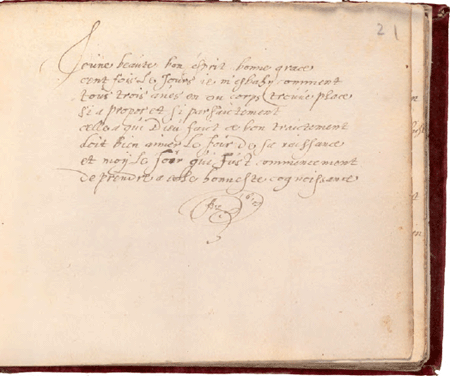 21
Jeune beaute bon esprit bonne grace
cent fois le Jours ie m'esbahy comment
tous trois aues en un corps treuue place
si a propos et si parfaictement
celle a qui Dieu faict ce bon traictement
doit bien aimer le Jour de sa naissance
et moy le Jour qui fust commencement
de prendre a cognoissance